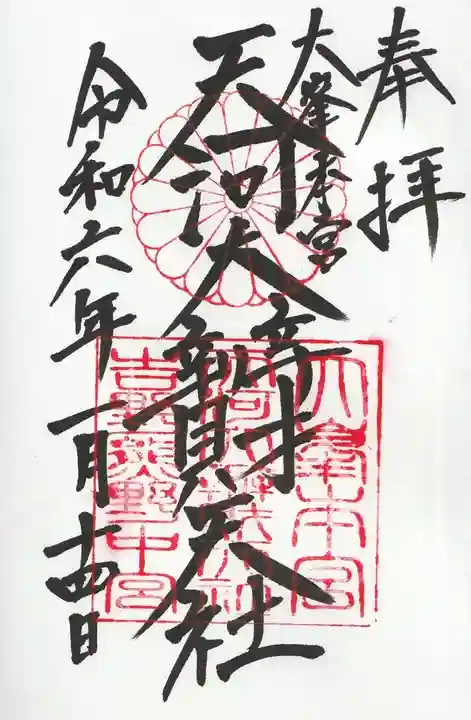 奉拝
大峯本宮
天河大辨財天社
令和六年一月十四日
大峯本宮
天河大辨財天社
吉野熊野中宮